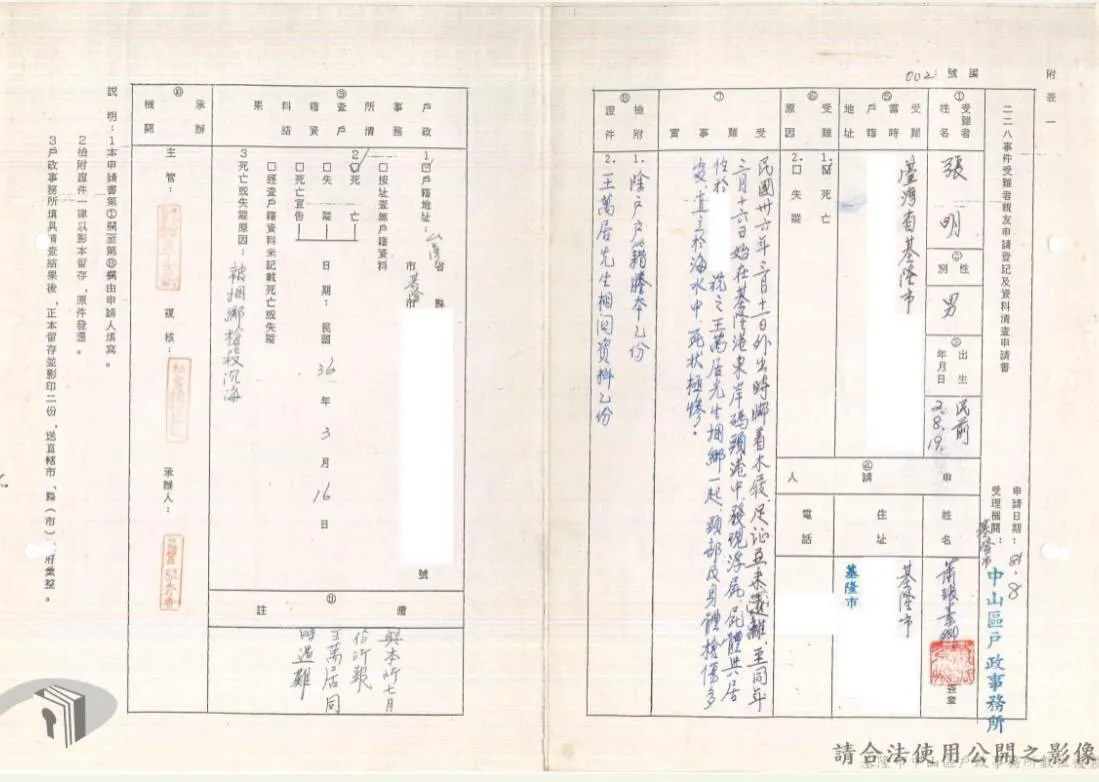 附表一
編號 002
二二八事件受難者親友申請登記及資料清查申請書
申請日期：81.8
受理機關：基隆市中山區戶政事務所
①受難者姓名 張明
②性別 男
③出生年月日 民前 2.8.19.
④申請人
姓名
住址 基隆市
基隆市
電話
蓋章
⑤受難時戶籍地址 臺灣省基隆市
⑥受難原因
1.☑死亡
2.□失蹤
⑦受難事實
民國卅六年三月十一日外出時腳着木屐，足證並未遠離，至同年
三月十六日始在基隆港東岸碼頭港中，發現浮屍，屍體與居
住於 號之王萬居先生捆綁一起，頭部及身體槍傷多
處，直立於海水中，死狀極慘。
⑧檢附證件
1.除戶戶籍謄本乙份
2.王萬居先生相關資料乙份
⑨戶政事務所清查戶籍資料結果
1.□戶籍地址：台灣省 縣市 基隆市 號
□按址查無戶籍資料
2.☑死亡
□失蹤
□死亡宣告
日期：民國 36 年 3 月 16 日
□經查戶籍資料未記載死亡或失蹤
3.死亡或失蹤原因：被捆綁槍殺沉海
⑩承辦機關
主管：
複核：
承辦人：
⑪備註
與本所七月
份所報
王萬居同
時遇難
說明：1.本申請書第①欄至第⑧欄由申請人填寫。
2.檢附證件一律以影本留存，原件發還。
3.戶政事務所填具清查結果後，正本留存並影印二份，送直轄市、縣（市）府彙整。
請合法使用公開之影像